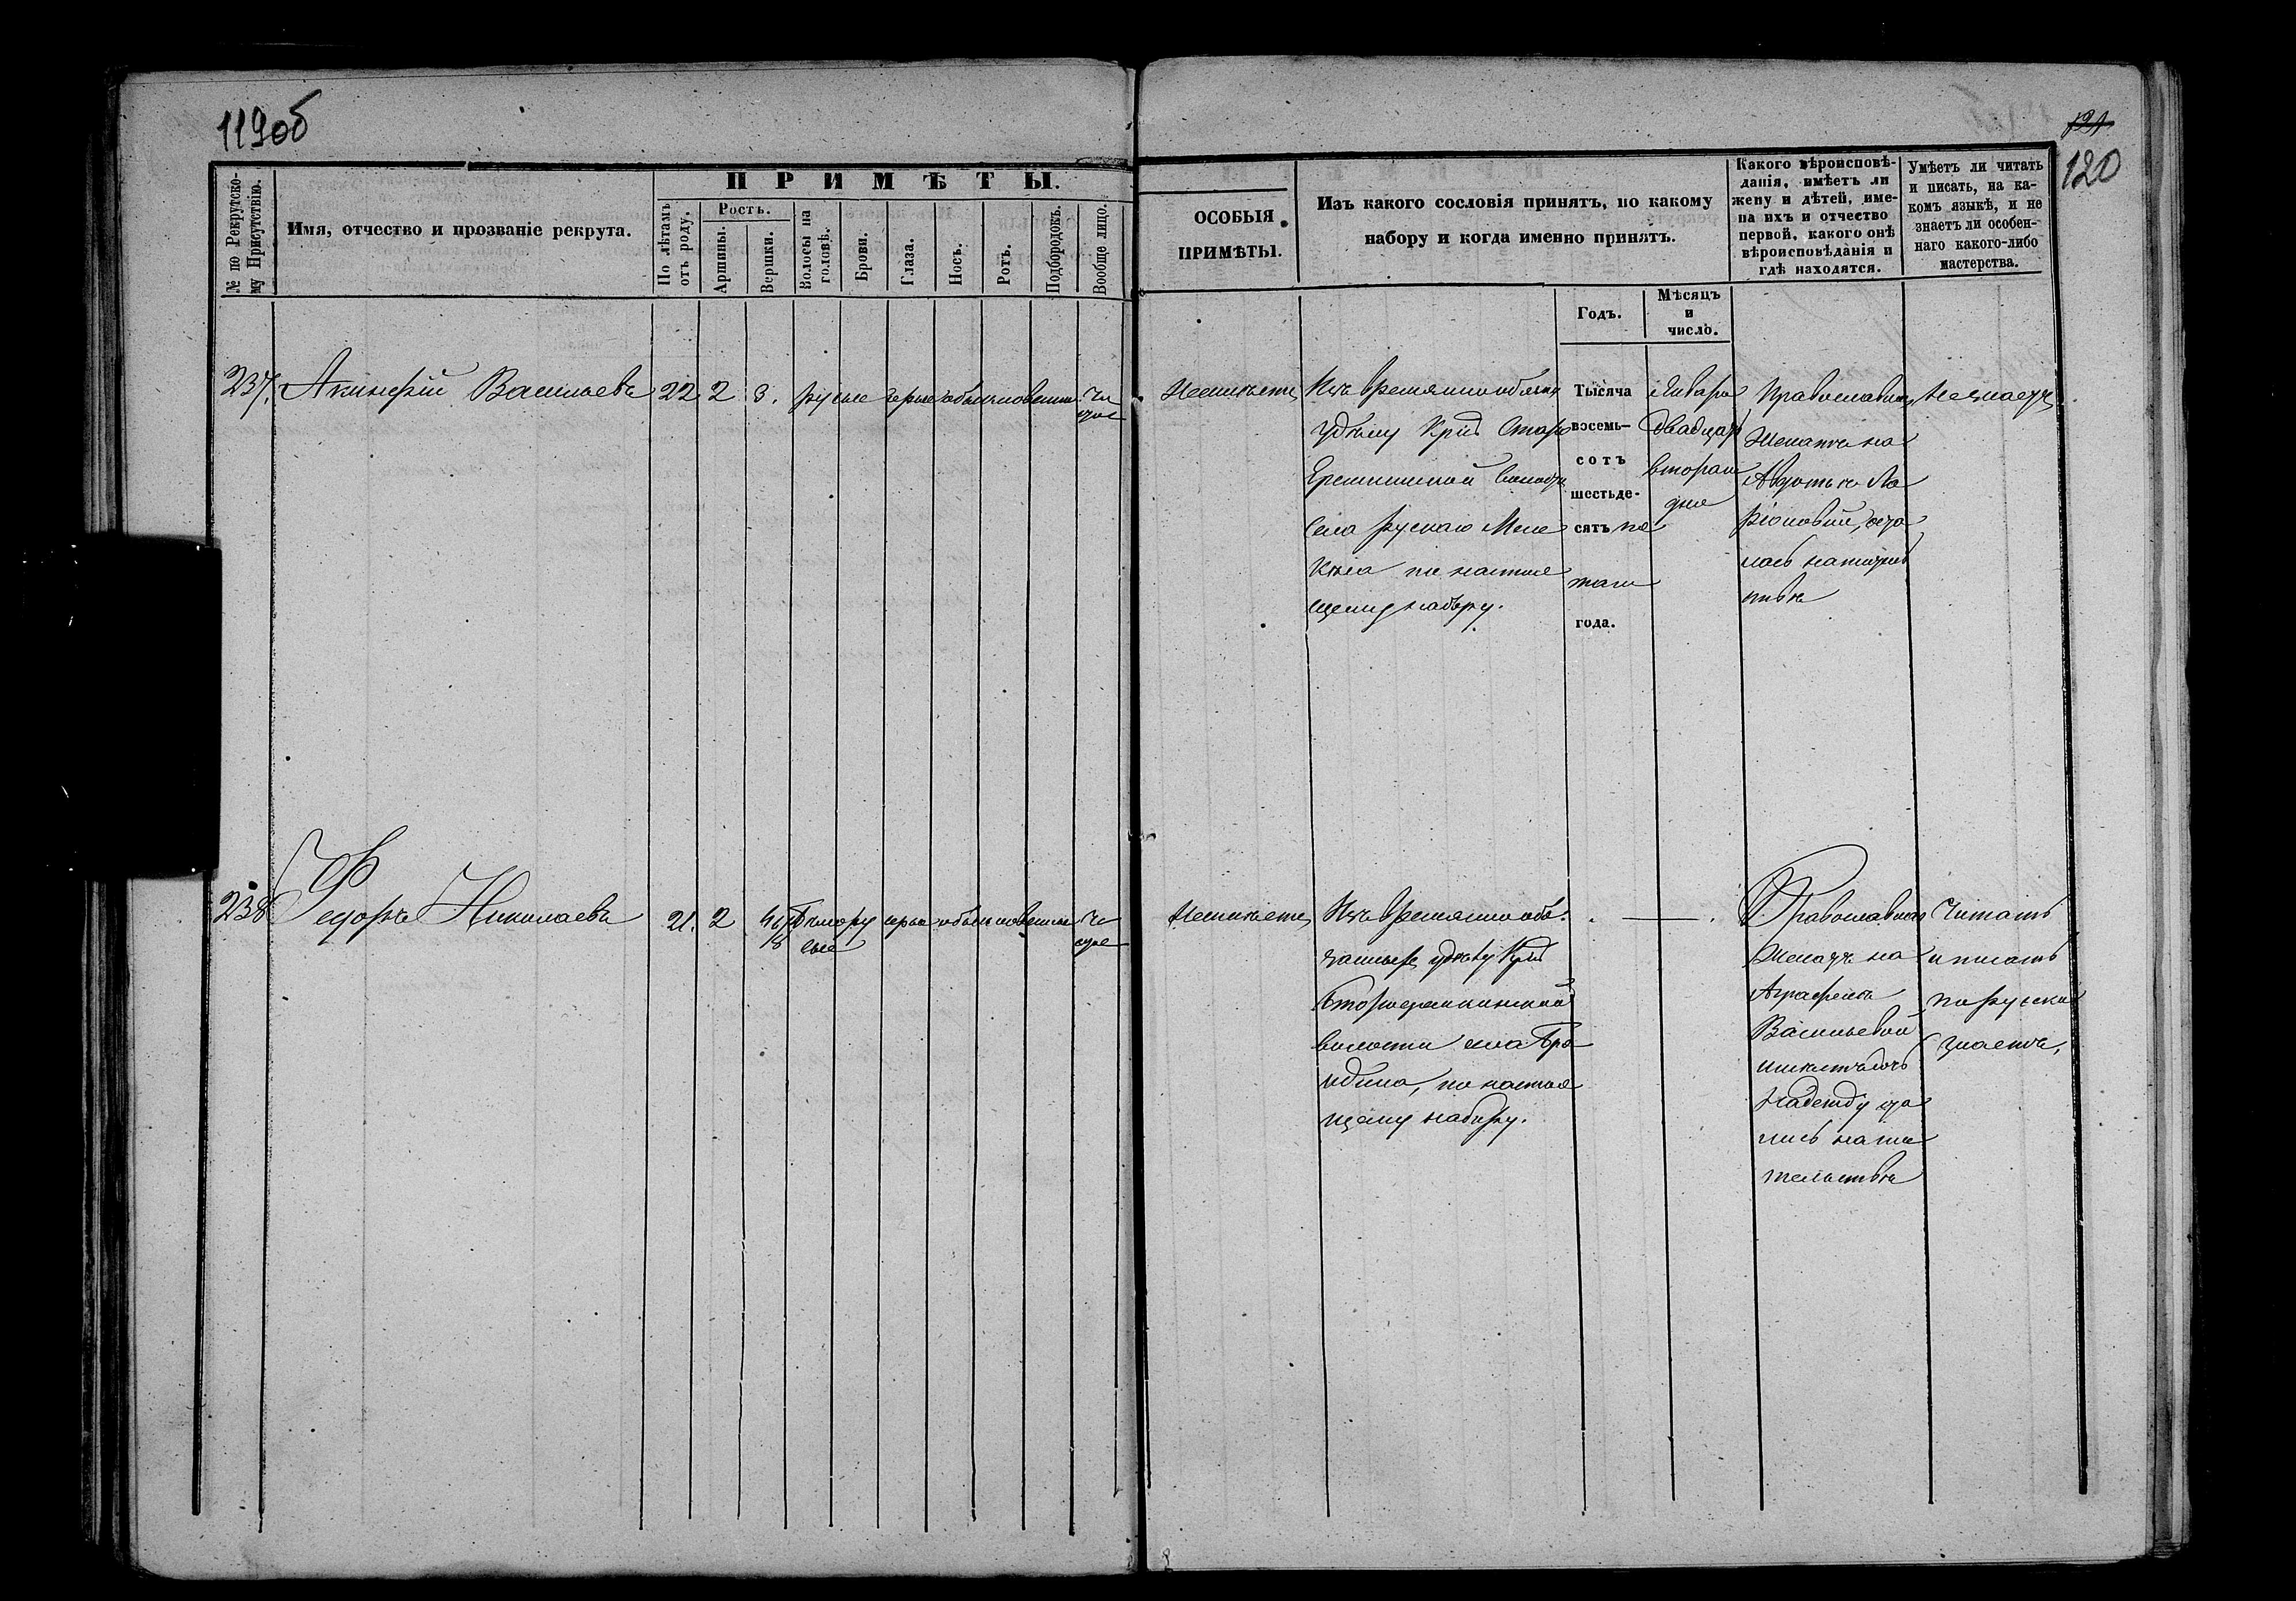 119об
121
120
№ по Рекрутско-
му Присутствію.
Имя, отчество и прозваніе рекрута.
ПРИМѢТЫ.
По лѣтамъ
отъ роду.
Ростъ.
Аршины.
Вершки.
Волосы на
головѣ.
Брови.
Глаза.
Носъ.
Ротъ.
Подбородокъ.
Вообще лицо.
ОСОБЫЯ
ПРИМѢТЫ.
Изъ какого сословія принятъ, по какому
набору и когда именно принятъ.
Годъ.
Мѣсяцъ
и
число.
Какого вѣроисповѣ-
данія, имѣетъ ли
жену и дѣтей, име-
на ихъ и отчество
первой, какого онѣ
вѣроисповѣданія и
гдѣ находятся.
Умѣетъ ли читать
и писать, на ка-
комъ языкѣ, и не
знаетъ ли особен-
наго какого-либо
мастерства.
237. Акинфій Васильевъ 22 2 3. русые серые обыкновенные чи
стое
Неимѣетъ
Изъ временно обязан
удѣльн Крест Старо
Еремкинской волости
Села рускаго Меле
кеса по настоя
щему набору.
Тысяча
восемь-
сотъ
шестьде-
сятъ пя
таго
года.
Января
двадцать
втораго
дня
Православнаго
Женатъ на
Авдотьѣ Ла
ріоновой, оста
лась на жител
ствѣ
Незнаетъ
238 Федоръ Николаевъ 21. 2 4 6/8 темнору серые обыкновенные чи
сые
стое
Неимѣетъ
Изъ временно обя-
занныхъ удѣльн Крест
Староеремкинской
волости села Бро
вдино, по настоя
щему набору.
Православнаго
Женатъ на
Аграфенѣ
Васильевой
имѣетъ дочь
Надежду оста
лись на жи
тельствѣ
Читать
и писать
по русски
знаетъ,